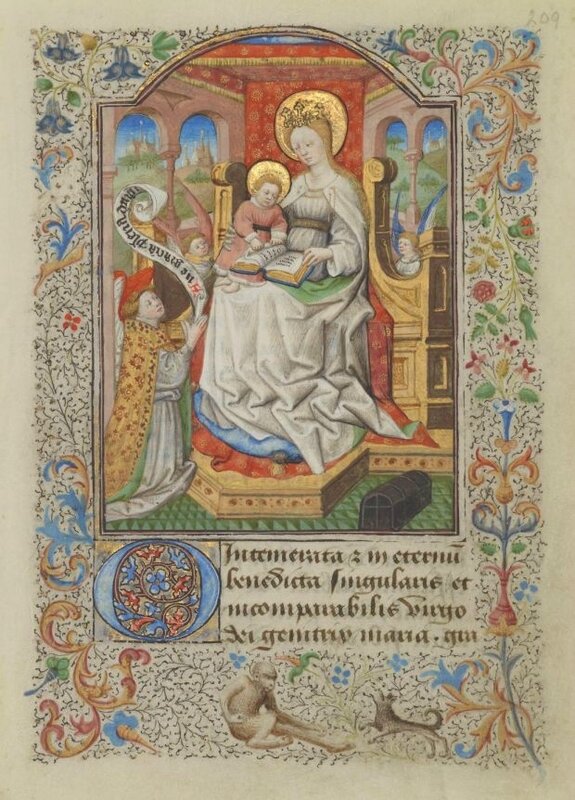 209
Aue gracia plena
O Intemerata ⁊ in eternū
benedicta singularis et
incomparabilis virgo
dei genitrix maria . gra